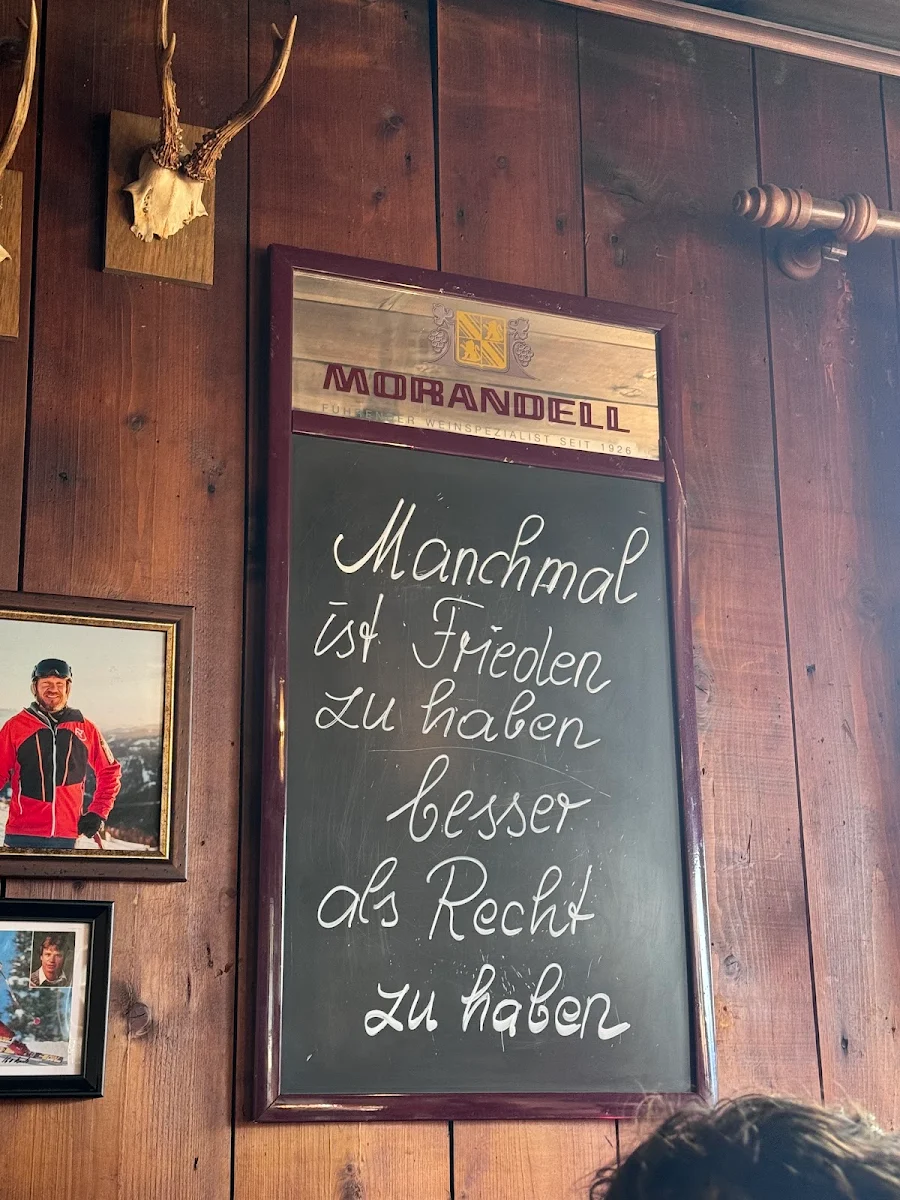 MORANDELL
FÜHRENDER WEINSPEZIALIST SEIT 1926
Manchmal
ist Frieden
zu haben
besser
als Recht
zu haben